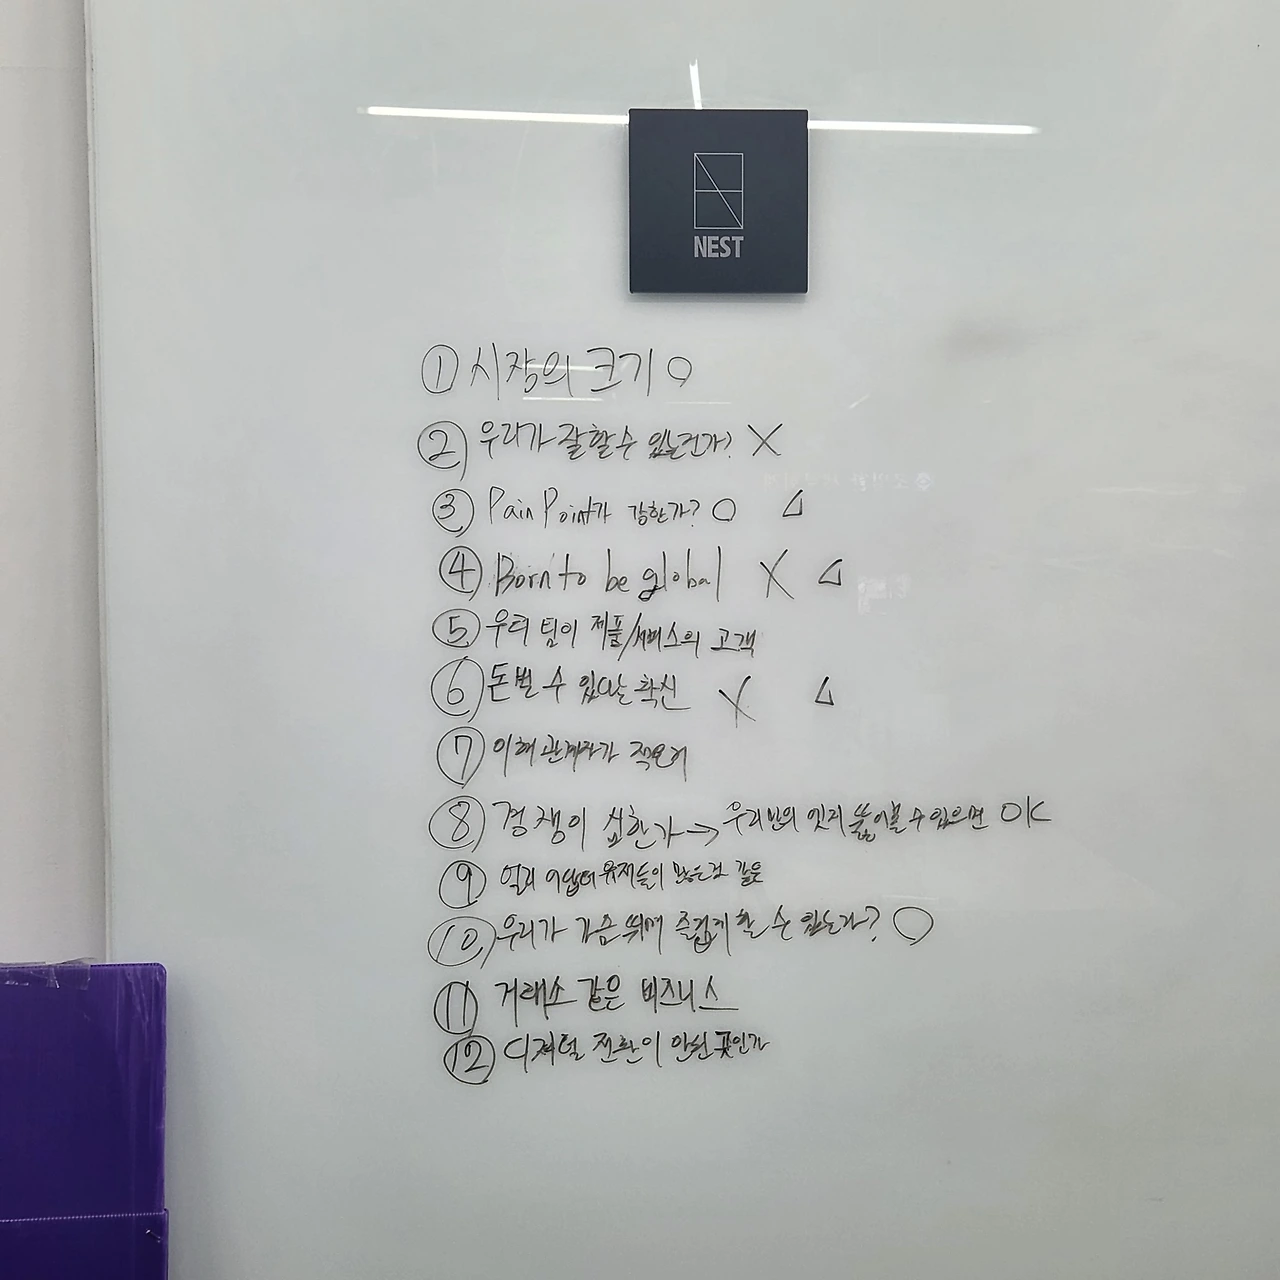 NEST
① 시장의 크기 ○
② 우리가 잘할 수 있는건가? X
③ Pain Point가 강한가? ○ △
④ Born to be global X △
⑤ 우리 팀이 제품/서비스의 고객
⑥ 돈 벌 수 있다는 확신 X △
⑦ 이해관계자가 적으며
⑧ 경쟁이 심한가 → 우리만의 엣지 뚫어볼 수 있으면 OK
⑨ 얼리 어답터 유저들이 많은것 같은
⑩ 우리가 가슴 뛰며 즐겁게 할 수 있는가? ○
⑪ 거래소 같은 비즈니스
⑫ 디지털 전환이 안된 곳인가